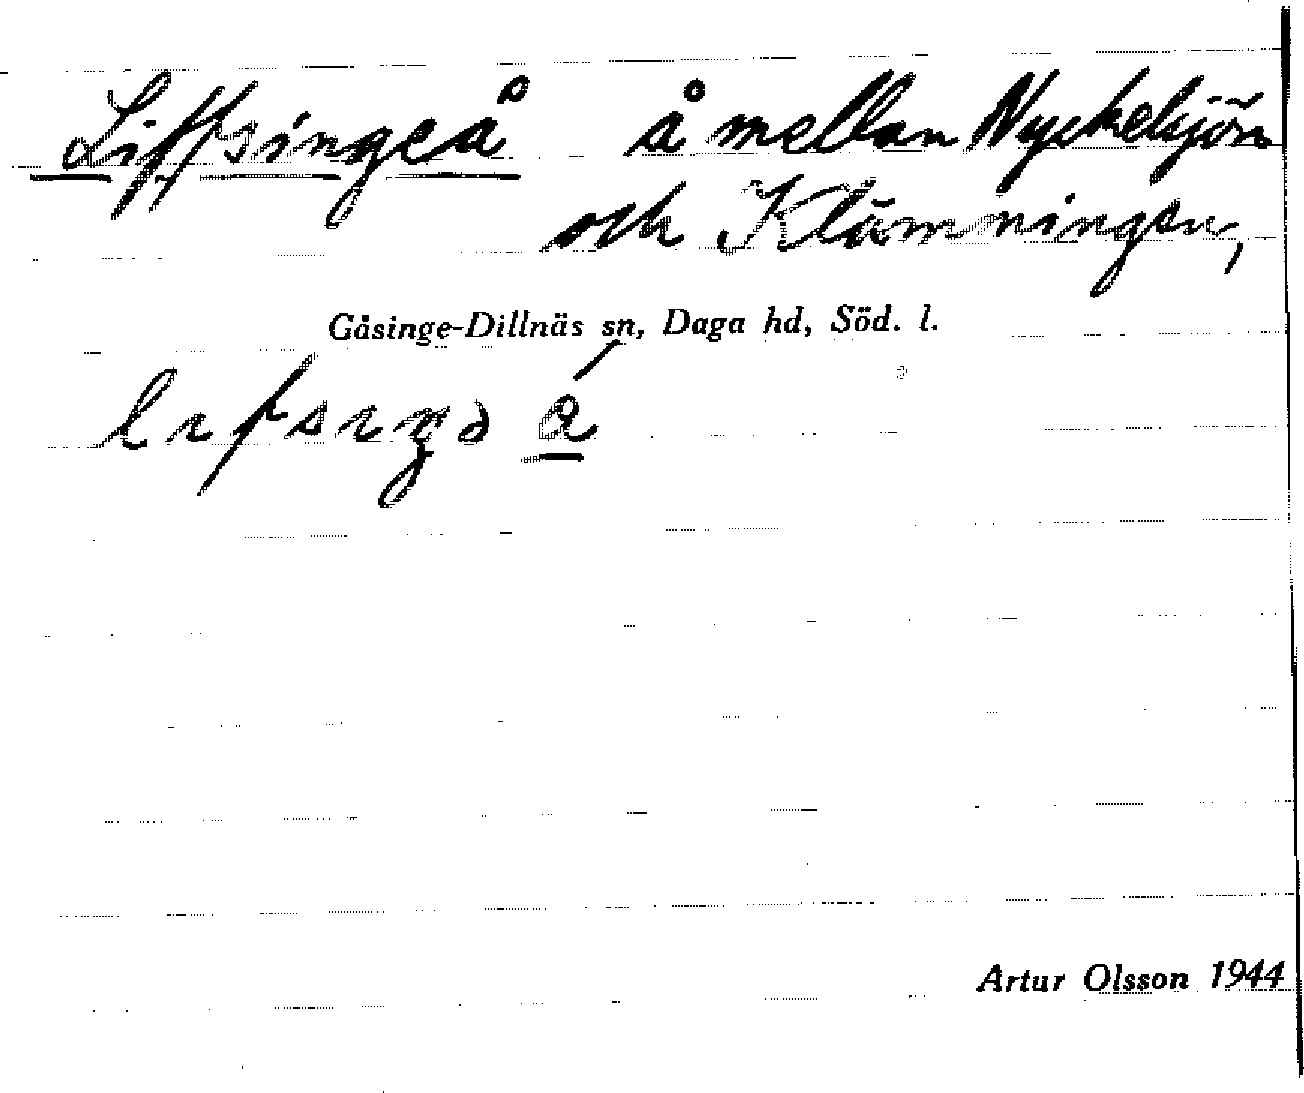 Liffsingeå å mellan Nyckelsjön
och Klämmingen,
Gåsinge-Dillnäs sn, Daga hd, Söd. l.
Artur Olsson 1944